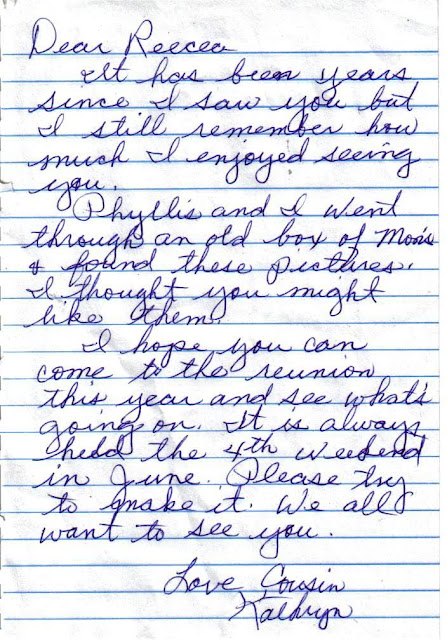 Dear Reecea
It has been years
since I saw you but
I still remember how
much I enjoyed seeing
you.
Phyllis and I went
through an old box of Mom's
& found these pictures.
I thought you might
like them.
I hope you can
come to the reunion
this year and see what's
going on. It is always
held the 4th weekend
in June. Please try
to make it. We all
want to see you.
Love Cousin
Kathryn